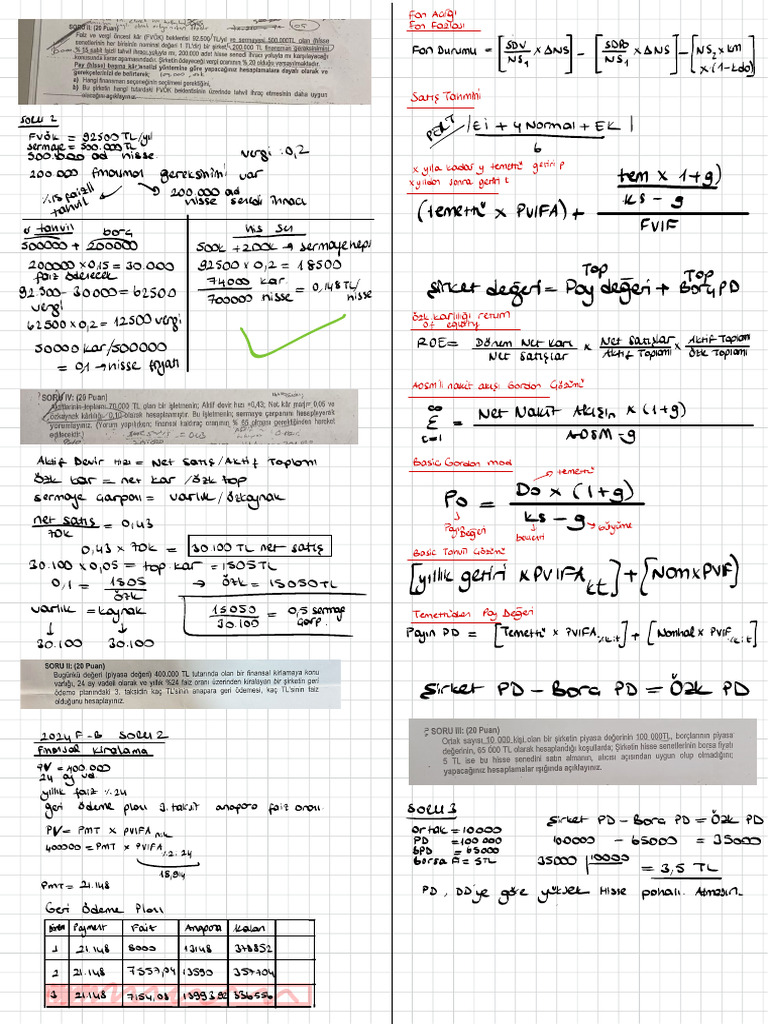 SORU II: (20 Puan)
Faiz ve vergi öncesi kâr (FVÖK) beklentisi 92.500 TL/yıl ve sermayesi 500.000TL olan (hisse
senetlerinin her birinin nominal değeri 1 TL'dir) bir şirket, 200.000 TL finansman gereksinimini
% 15 sabit faizli tahvil ihracı yoluyla mı, 200.000 adet hisse senedi ihracı yoluyla mı karşılayacağı
konusunda karar aşamasındadır. Şirketin ödeyeceği vergi oranının % 20 olduğu varsayılmaktadır.
Pay (hisse) başına kâr analizi yöntemine göre yapacağınız hesaplamalara dayalı olarak ve
gerekçelerinizi de belirterek;
a) Hangi finansman seçeneğinin seçilmesi gerektiğini,
b) Bu şirketin hangi tutardaki FVÖK beklentisinin üzerinde tahvil ihraç etmesinin daha uygun
olacağını açıklayınız.
SORU 2
FVÖK = 92500 TL/yıl
sermaye = 500.000TL
500.000 ad hisse
vergi : 0,2
200.000 finansman gereksinimi var
%15 faizli tahvil
200.000 ad hisse senedi ihracı
tahvil borç
500000 + 200000
200000 x 0,15 = 30.000
faiz ödenecek
92.500 - 30000 = 62500
vergi
62500 x 0,2 = 12500 vergi
50000 kar/500000
= 0,1 → hisse fiyatı
his sen
500k + 200k → sermaye hepsi
92500 x 0,2 = 18500
74000 kar / 700000 hisse = 0,148 TL/hisse
SORU IV: (20 Puan)
Aktiflerinin toplamı 70.000 TL olan bir işletmenin; Aktif devir hızı =0,43; Net kâr marjı 0,05 ve
özkaynak kârlılığı 0,10 olarak hesaplanmıştır. Bu işletmenin; sermaye çarpanını hesaplayarak
yorumlayınız. (Yorum yapılırken; finansal kaldıraç oranının % 65 olması gereğinden hareket
edilecektir.)
Aktif Devir Hızı = Net Satış / Aktif Toplamı
Özk kar = net kar / özk top
sermaye çarpanı = varlık / özkaynak
net satış / 70k = 0,43
0,43 x 70k = 30.100 TL net satış
30.100 x 0,05 = top.kar = 1505 TL
0,1 = 1505 / ÖZK → özk = 15050TL
varlık = kaynak
↓ ↓
30.100 30.100
15050 / 30.100 = 0,5 sermaye çarp.
SORU II: (20 Puan)
Bugünkü değeri (piyasa değeri) 400.000 TL tutarında olan bir finansal kiralamaya konu
varlığı, 24 ay vadeli olarak ve yıllık %24 faiz oranı üzerinden kiralayan bir şirketin geri
ödeme planındaki 3. taksidin kaç TL'sinin anapara geri ödemesi, kaç TL'sinin faiz
olduğunu hesaplayınız.
2024 F-B SORU 2
Finansal Kiralama
PV = 400.000
24 ay va
yıllık faiz %24
geri ödeme planı 3.taksit anapara faiz oranı.
PV = PMT x PVIFA n,k
400000 = PMT x PVIFA %2.24
18,914
PMT = 21.148
Geri Ödeme Planı
Birim Payment Faiz Anapara Kalan
1 21.148 8000 13148 378852
2 21.148 7557,04 13590 357704
3 21.148 7154,08 13993.92 336556
Fon Açığı
Fon Fazlası
Fon Durumu = [SDV / NS1 x ΔNS] - [SDPD / NS1 x ΔNS] - [NS2 x km x (1-kdo)]
Satış Tahmini
PERT / |Ei + 4 Normal + EK| / 6
x yıla kadar y temettü getiri p
x yıldan sonra getiri t
(temettü x PVIFA) + tem x 1+g) / ks - g / FVIF
TOP TOP
Şirket değeri = Pay değeri + Borç PD
Özk. karlılığı return of equity
ROE = Dönem Net Karı / Net satışlar x Net Satışlar / Aktif Toplamı x Aktif Toplamı / Özk Toplamı
AOSM'li nakit akışı Gordon Çözümü
∞ Σ t=1 = Net Nakit Akışın x (1+g) / AOSM - g
Basic Gordon mod
→ temettü
Po = Do x (1+g) / ks - g
Pay Değeri
beklenti
büyüme
Basic Tahvil Çözümü
[yıllık getiri x PVIFA k,t] + [Nom x PVIF]
Temettüden Pay Değeri
Payın PD = [Temettü x PVIFA %k,t] + [Nominal x PVIF %k,t]
Şirket PD - Borç PD = Özk PD
SORU III: (20 Puan)
Ortak sayısı 10.000 kişi olan bir şirketin piyasa değerinin 100.000TL, borçlarının piyasa
değerinin, 65.000 TL olarak hesaplandığı koşullarda; Şirketin hisse senetlerinin borsa fiyatı
5 TL ise bu hisse senedini satın almanın, alıcısı açısından uygun olup olmadığını;
yapacağınız hesaplamalar ışığında açıklayınız.
SORU 3
ortak = 10000
PD = 100.000
BPD = 65000
borsa fi = 5TL
Şirket PD - Borç PD = Özk PD
100000 - 65000 = 35000
35000 | 10000 = 3,5 TL
PD, DD'ye göre yüksek Hisse pahalı. Almasın.